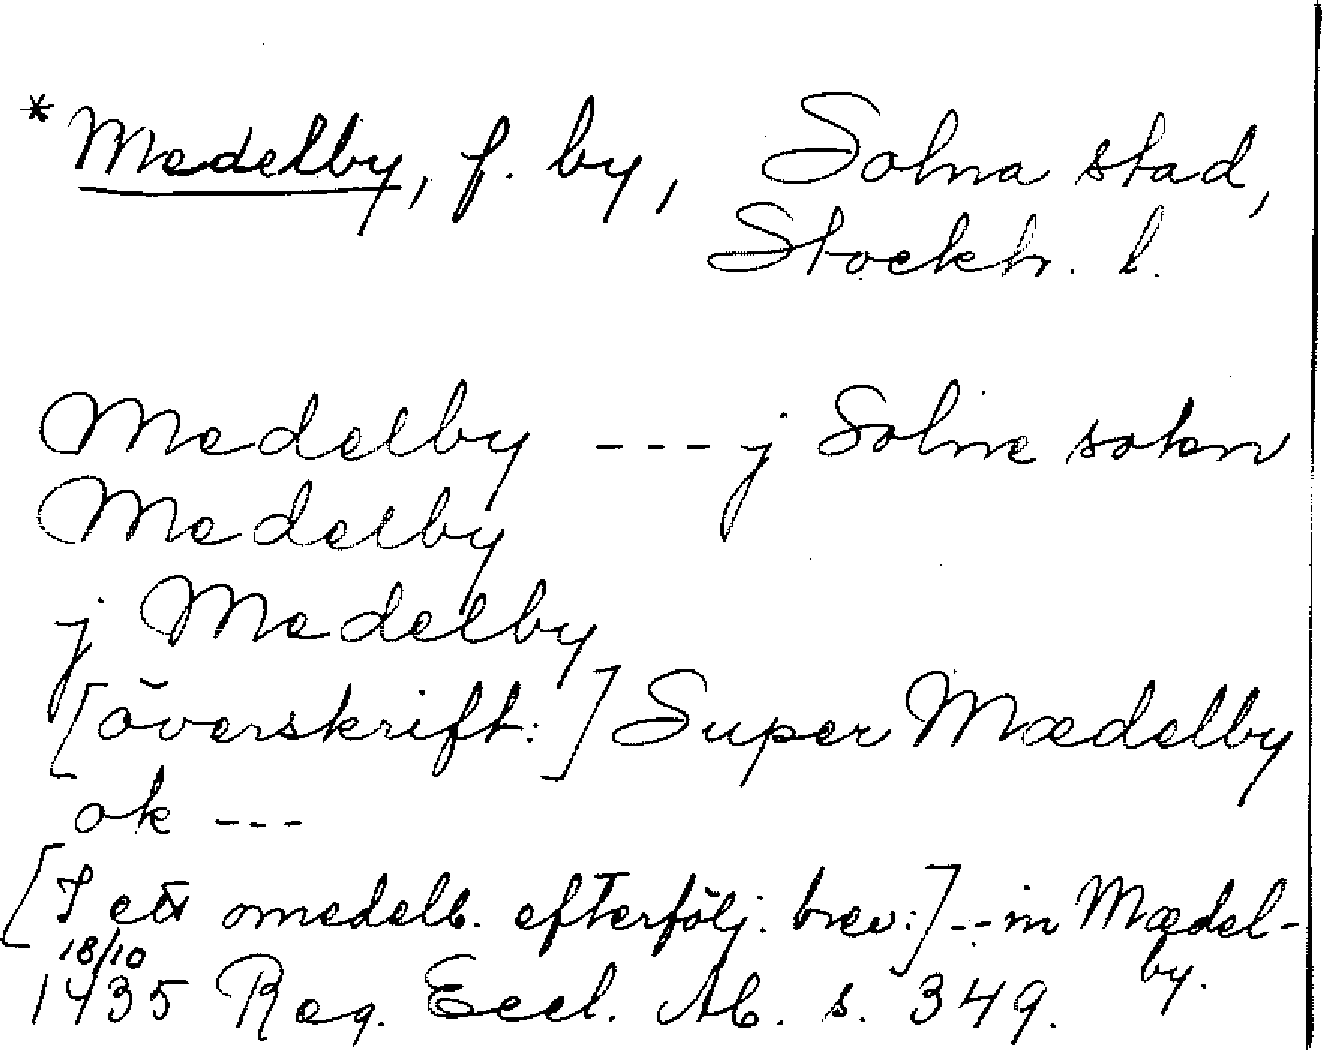 * Medelby, f. by, Solna stad,
Stockh. l.
Medelby --- j Solne sokn
Medelby
j Medelby
[överskrift:] Super Mædelby
ok ---
[I ett omedelb. efterfölj. brev:] --- in Mædel-
by.
18/10
1435 Reg. Eccl. Ab. s. 349.